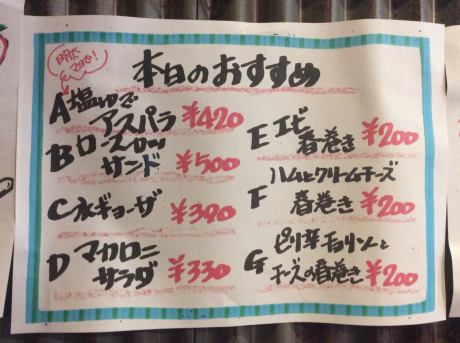 本日のおすすめ
A 塩ゆで
アスパラ ¥420
B ロースカツ
サンド ¥500
C 水ギョーザ ¥380
D マカロニ
サラダ ¥330
E エビ
春巻き ¥200
F ハムとクリームチーズ
春巻き ¥200
G ピリ辛チョリソーと
チーズの春巻き ¥200